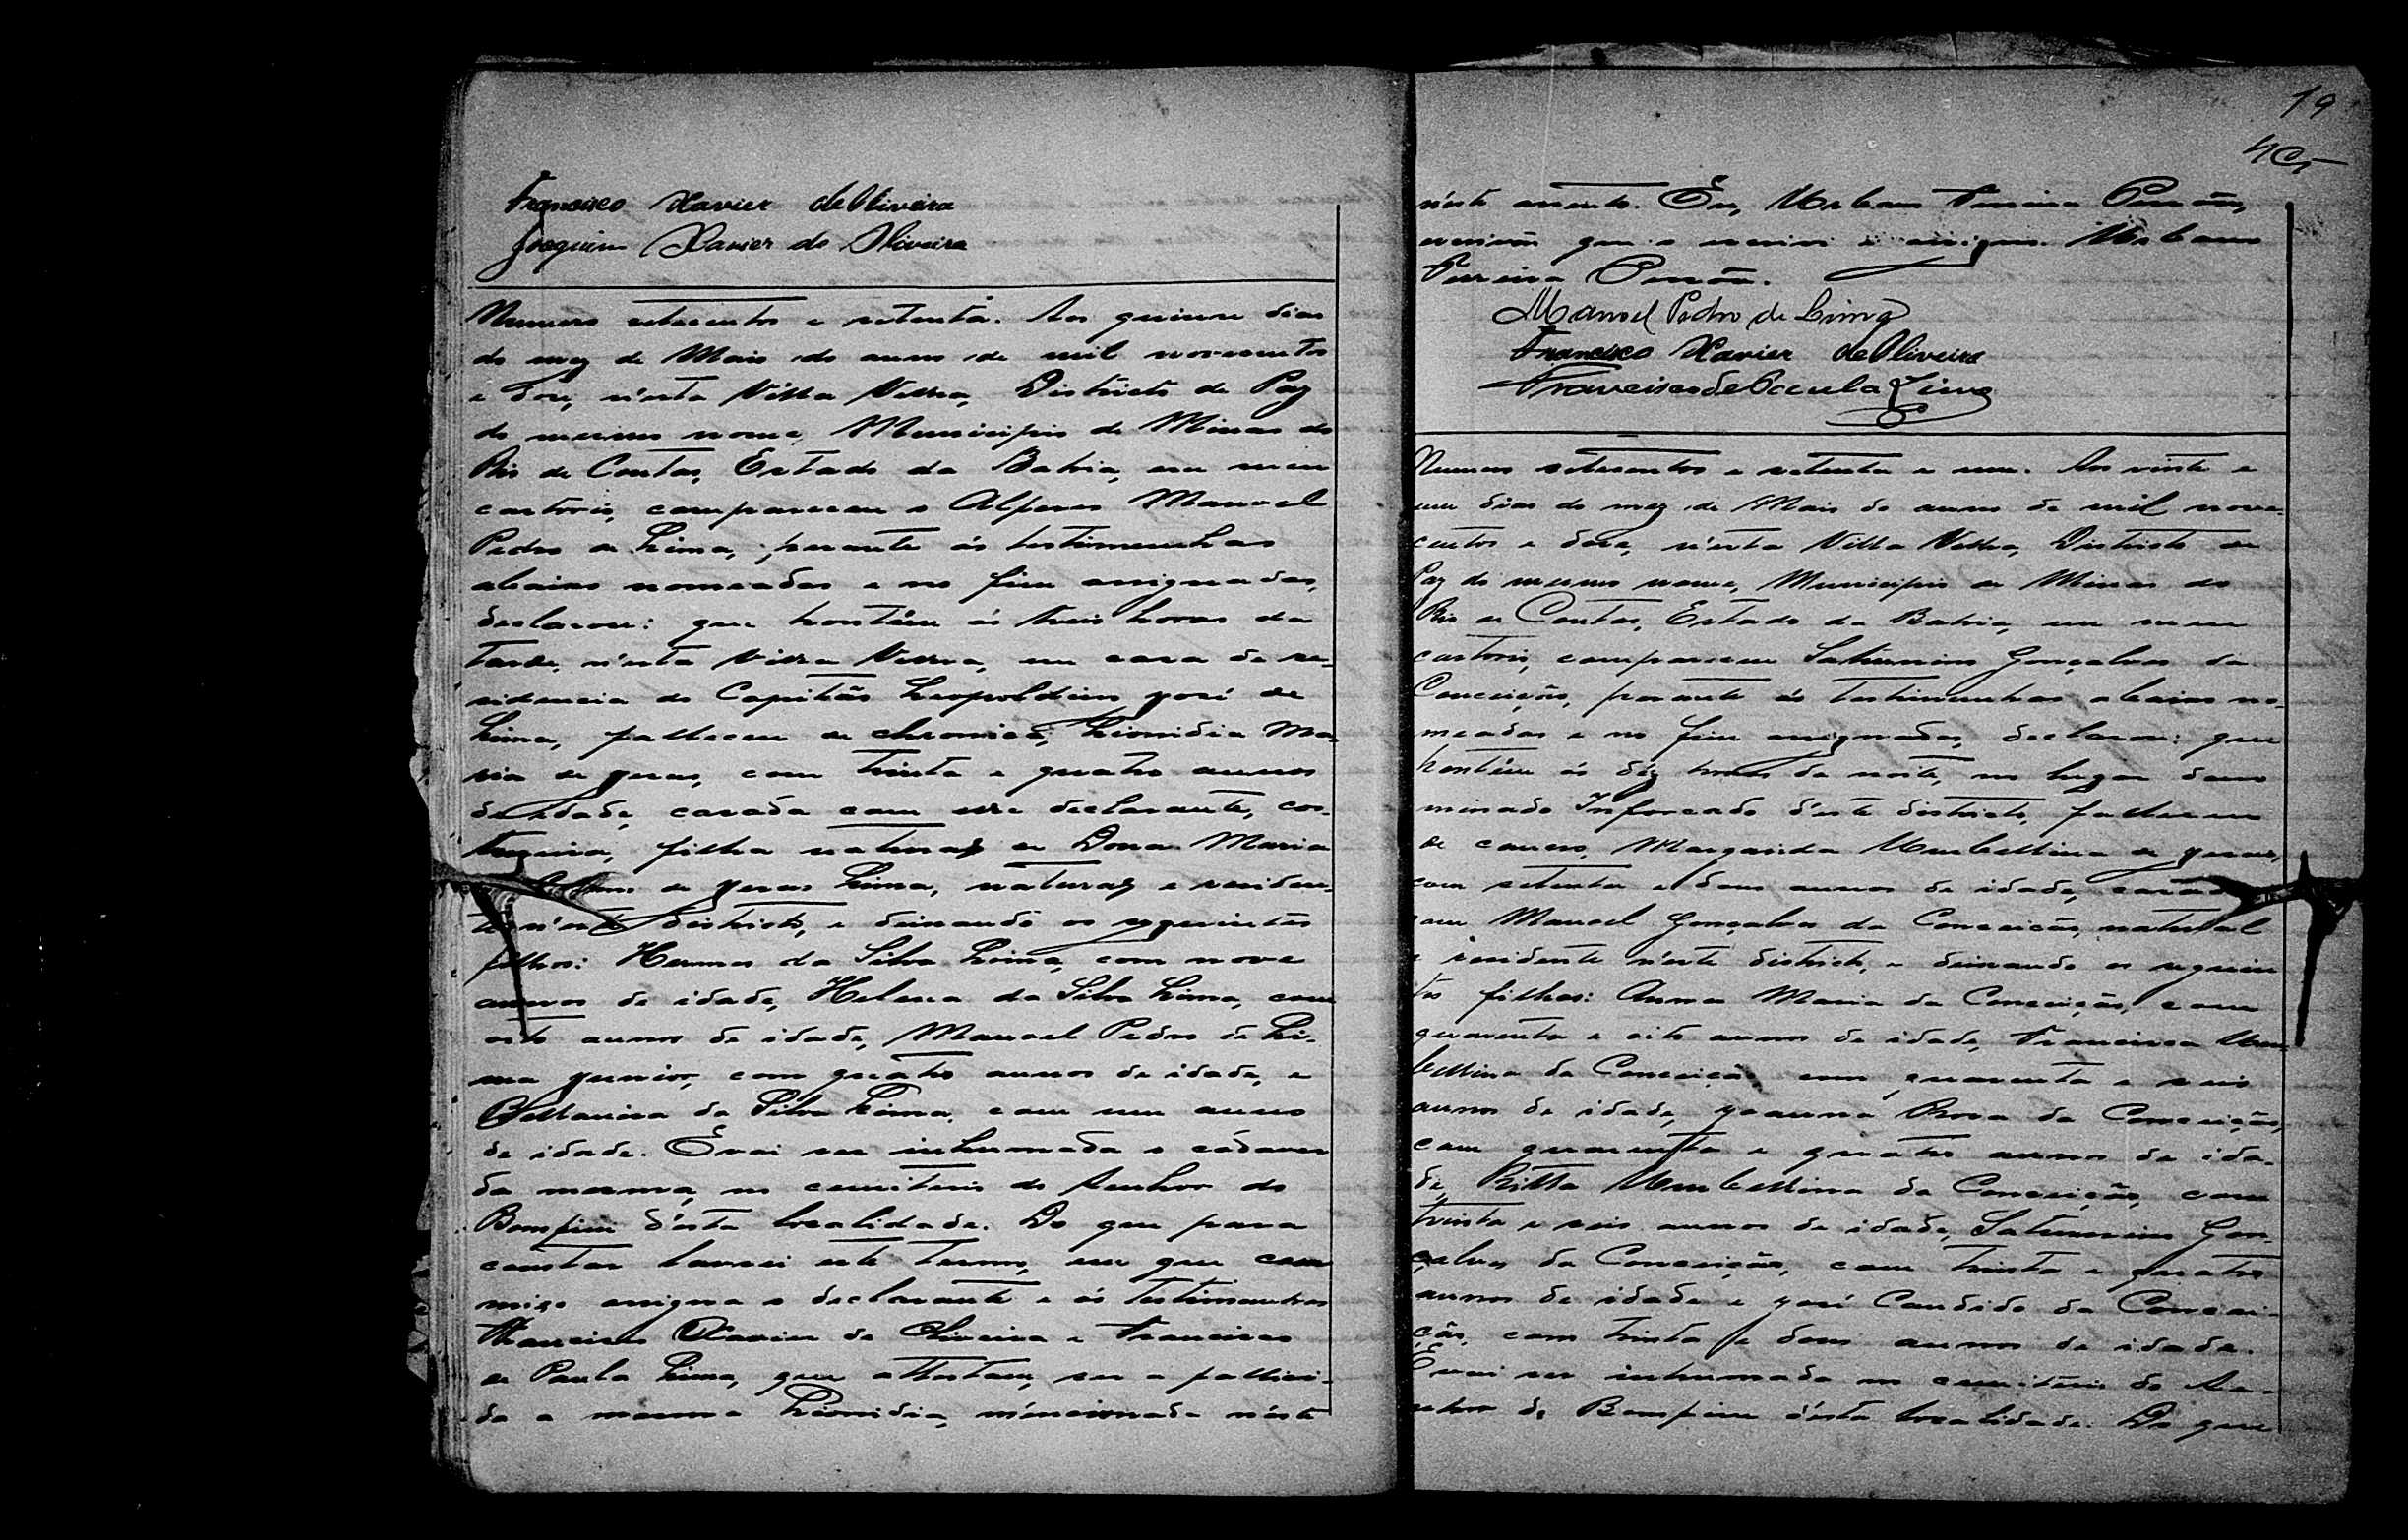 Francisco Xavier de Oliveira
Joaquim Xavier de Oliveira
Numero setecentos e setenta. Aos quinse dias
do mez de Maio do anno de mil novecentos
e dose, n'esta Villa Velha, Districto de Paz
do mesmo nome, Municipio de Minas do
Rio de Contas, Estado da Bahia, em meu
cartorio, compareceu o Alferes Manoel
Pedro de Lima, perante ás testimunhas
abaixo nomeadas e no fim assignadas,
declarou: que hontêm ás treis horas da
tarde, n'esta Villa Velha, em casa de re-
sidencia do Capitão Leopoldino José de
Lima, falleceu de chronica, Leonidia Ma-
ria de Jesus, com trinta e quatro annos
de idade, casada com elle declarante, cos-
tureira, filha natural de Dona Maria
de Jesus Lima, natural e residen-
te n'este districto, e deixando os seguintes
filhos: Hermes da Silva Lima, com nove
annos de idade, Helena da Silva Lima, com
oito annos de idade, Manoel Pedro de Li-
ma Junior, com quatro annos de idade, e
da Silva Lima, com um anno
de idade. E vai ser inhumada o cádaver
da mesma, no cemiterio do Senhor do
Bomfim d'ésta localidade. Do que para
constar lavrei este termo, em que com
migo assigna o declarante e ás testimunhas
Francisco Xavier de Oliveira e Francisco
de Paula Lima, que attestam, ser a falleci-
da a mesma Leonidia, mencionada n'éste
19
n'éste assento. Eu, Urbano Ferreira
escrivão que o escrevi e assigno. Urbano
Ferreira
Manoel Pedro de Lima
Francisco Xavier de Oliveira
Francisco de Paula Lima
Numero setecentos e setenta e um. Aos vinte e
um dias do mez de Maio do anno de mil nove-
centos e dose, n'esta Villa Velha, Districto de
Paz do mesmo nome, Municipio de Minas do
Rio de Contas, Estado da Bahia, em meu
cartorio, compareceu Saturnino Gonçalves da
Conceição, perante ás testimunhas abaixo no-
meadas e no fim assignadas, declarou: que
hontêm ás déz horas da noite, no lugar deno
minado Inforcado d'este districto, falleceu
de cancro, Margarida Umbellina de Jesus,
com setenta e dous annos de idade, casada
com Manoel Gonçalves da Conceição, natural
e residente n'este districto, e deixando os seguin
tes filhos: Anna Maria da Conceição, com
quarenta e oito annos de idade, Francisca Um-
bellina da Conceição com quarenta e seis
annos de idade, Joanna Rosa da Conceição,
com quarenta e quatro annos de ida-
de, Ritta Umbellina da Conceição, com
trinta e seis annos de idade, Saturnino Gon-
çalves da Conceição, com trinta e quatro
annos de idade e José Candido da Concei-
ção, com trinta e dous annos de idade.
E vai ser inhumada no cemiterio do Se-
nhor do Bomfim d'ésta localidade. Do que